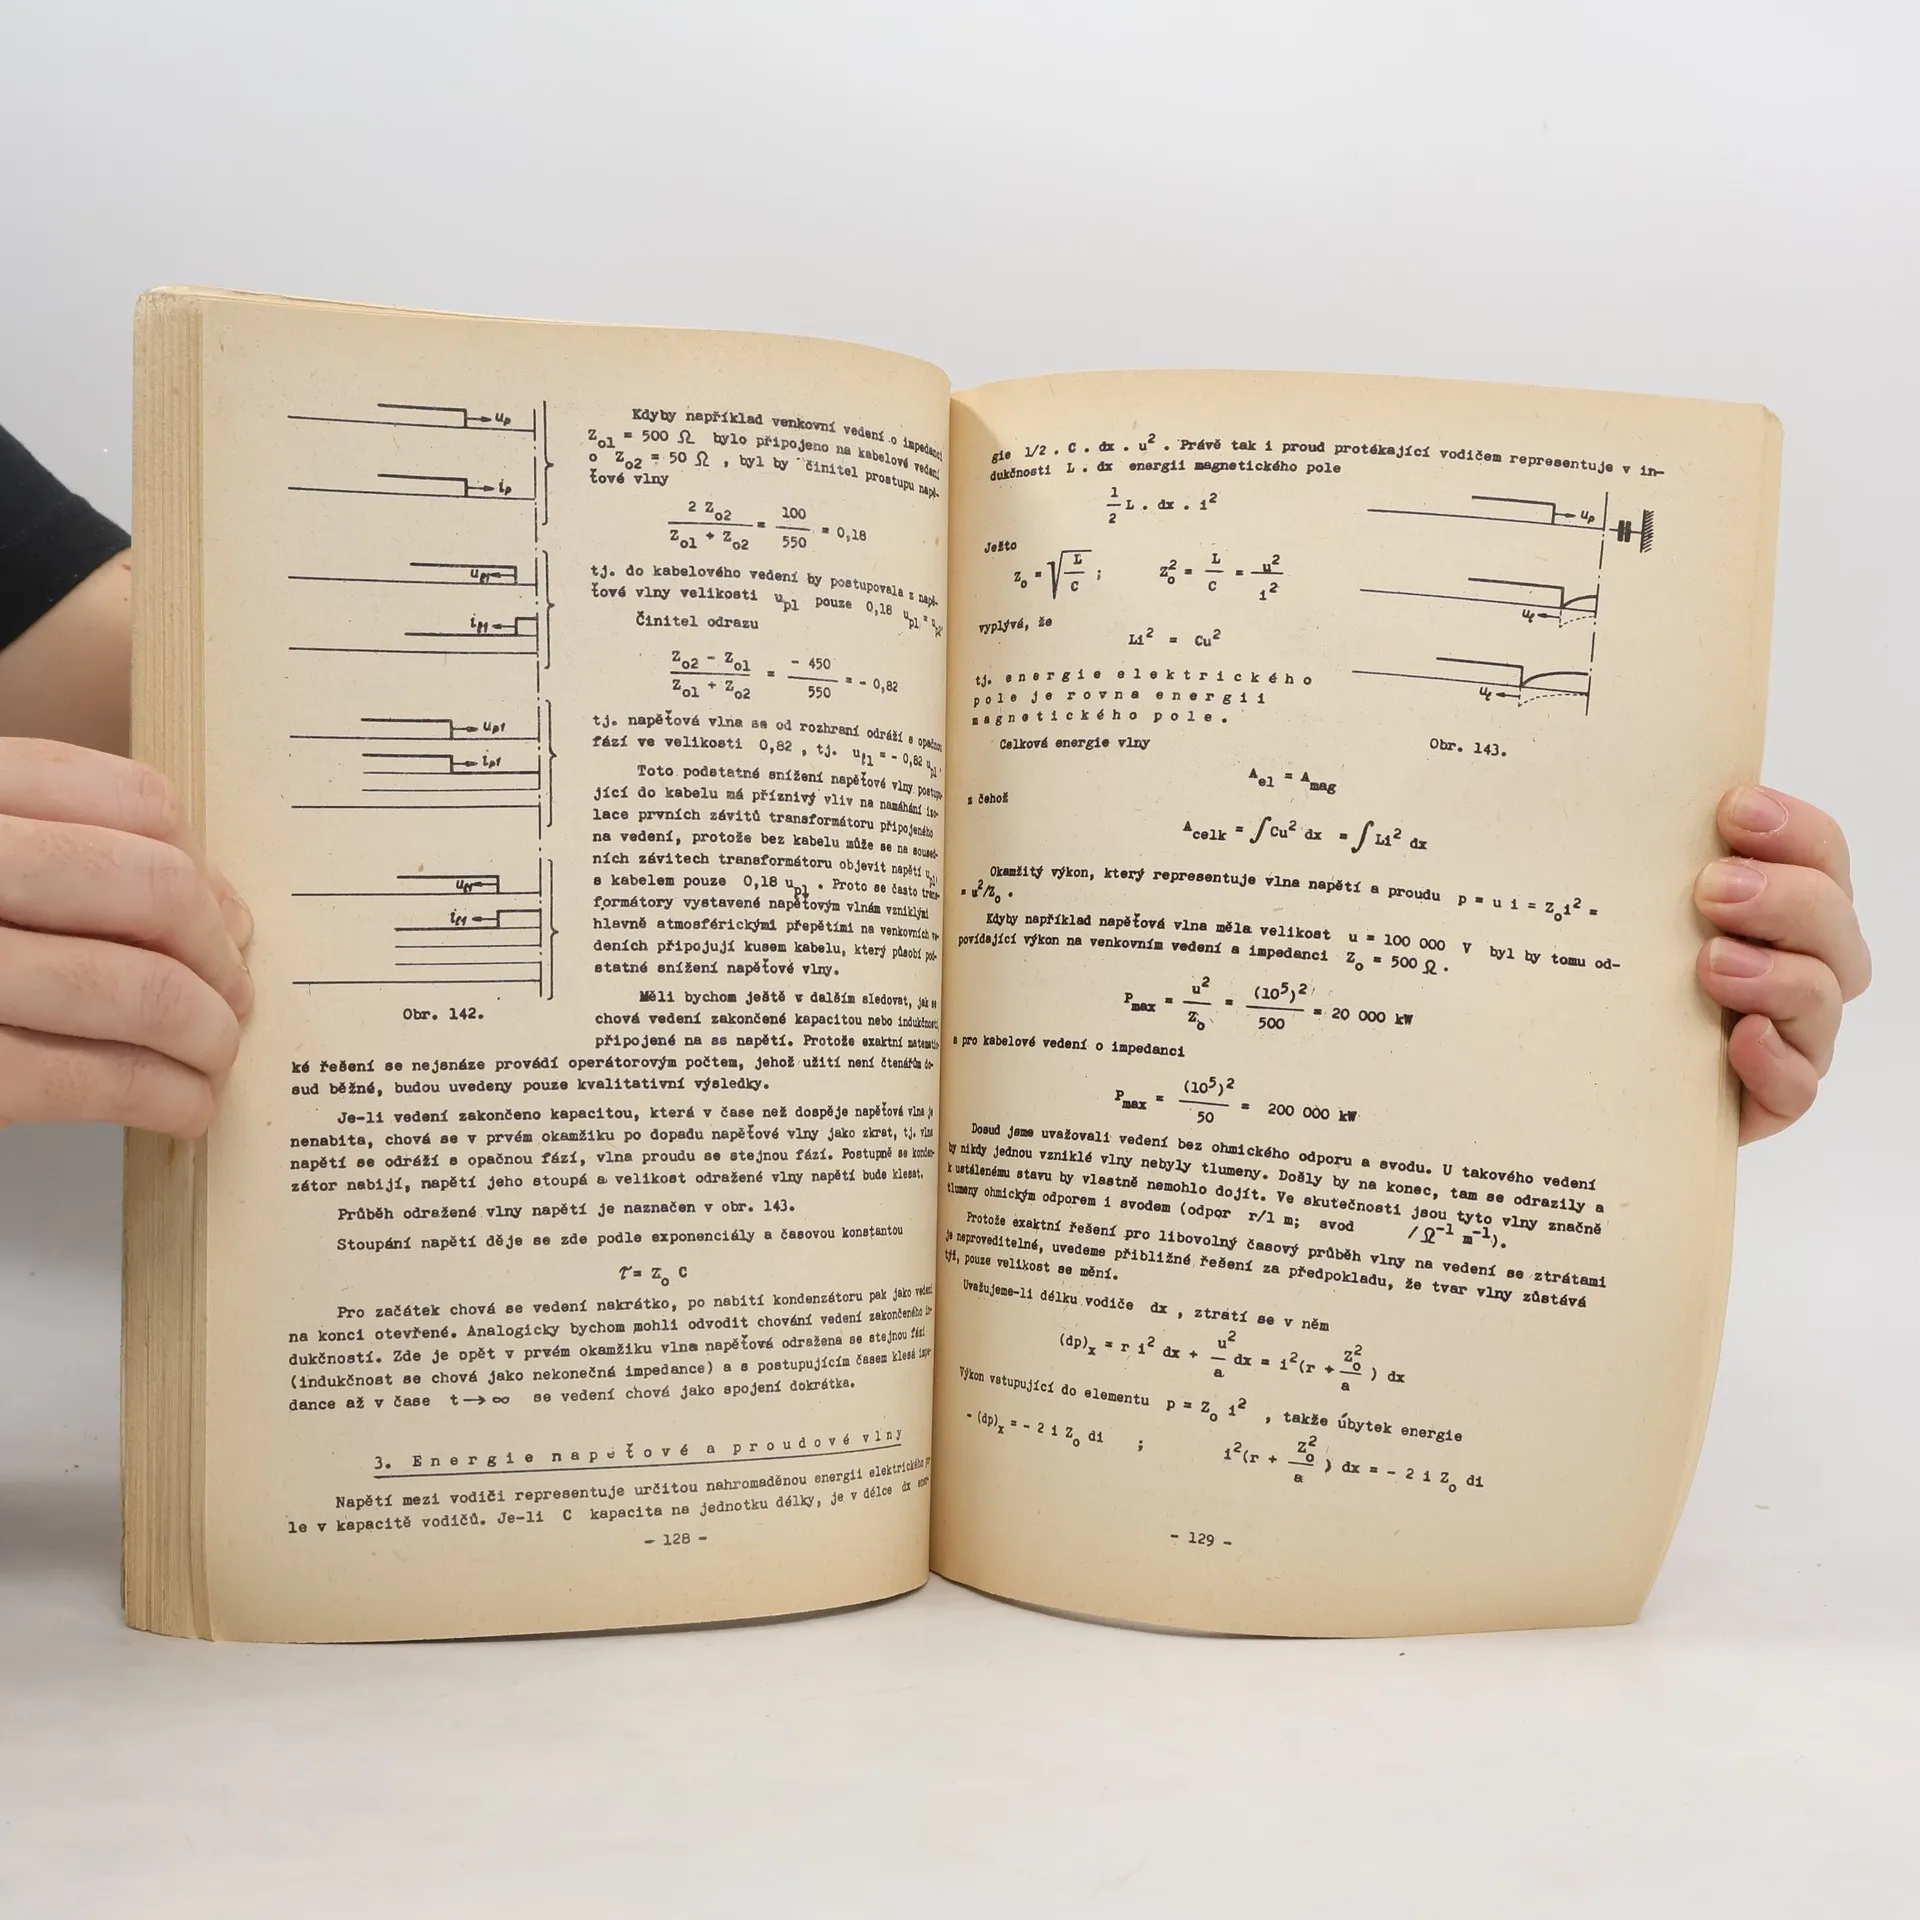 Kdyby například venkovní vedení o impedanci
Z01 = 500 Ω bylo připojeno na kabelové vedení
o Z02 = 50 Ω , byl by činitel prostupu napě-
ťové vlny
2 Z02 / (Z01 + Z02) = 100 / 550 = 0,18
tj. do kabelového vedení by postupovala z napě-
ťové vlny velikosti up1 pouze 0,18 up1 = up2.
Činitel odrazu
(Z02 - Z01) / (Z01 + Z02) = - 450 / 550 = - 0,82
tj. napěťová vlna se od rozhraní odráží s opačnou
fází ve velikosti 0,82 , tj. uℓ1 = - 0,82 up1.
Toto podstatné snížení napěťové vlny postupu-
jící do kabelu má příznivý vliv na namáhání iso-
lace prvních závitů transformátoru připojeného
na vedení, protože bez kabelu může se na soused-
ních závitech transformátoru objevit napětí up1,
s kabelem pouze 0,18 up1 . Proto se často trans-
formátory vystavené napěťovým vlnám vzniklými
hlavně atmosférickými přepětími na venkovních ve-
deních připojují kusem kabelu, který působí pod-
statné snížení napěťové vlny.
Obr. 142.
Měli bychom ještě v dalším sledovat, jak se
chová vedení zakončené kapacitou nebo indukčností
připojené na ss napětí. Protože exaktní matematic-
ké řešení se nejsnáze provádí operátorovým počtem, jehož užití není čtenářům do-
sud běžné, budou uvedeny pouze kvalitativní výsledky.
Je-li vedení zakončeno kapacitou, která v čase než dospěje napěťová vlna je
nenabita, chová se v prvém okamžiku po dopadu napěťové vlny jako zkrat, tj. vlna
napětí se odráží s opačnou fází, vlna proudu se stejnou fází. Postupně se konden-
zátor nabijí, napětí jeho stoupá a velikost odražené vlny napětí bude klesat.
Průběh odražené vlny napětí je naznačen v obr. 143.
Stoupání napětí děje se zde podle exponenciály a časovou konstantou
τ = Z0 C
Pro začátek chová se vedení nakrátko, po nabití kondenzátoru pak jako vedení
na konci otevřené. Analogicky bychom mohli odvodit chování vedení zakončeného in-
dukčností. Zde je opět v prvém okamžiku vlna napěťová odražena se stejnou fází
(indukčnost se chová jako nekonečná impedance) a s postupujícím časem klesá impe-
dance až v čase t → ∞ se vedení chová jako spojení dokrátka.
3. Energie napěťové a proudové vlny
Napětí mezi vodiči representuje určitou nahromaděnou energii elektrického po-
le v kapacitě vodičů. Je-li C kapacita na jednotku délky, je v délce dx ener-
- 128 -
gie 1/2 . C . dx . u² . Právě tak i proud protékající vodičem representuje v in-
dukčnosti L . dx energii magnetického pole
1/2 L . dx . i²
Ježto
Z0 = √(L/C) ; Z0² = L/C = u²/i²
vyplývá, že
Li² = Cu²
tj. energie elektrického
pole je rovna energii
magnetického pole.
Obr. 143.
Celková energie vlny
Ael = Amag
z čehož
Acelk = ∫ Cu² dx = ∫ Li² dx
Okamžitý výkon, který representuje vlna napětí a proudu p = u i = Z0i² =
= u²/Z0 .
Kdyby například napěťová vlna měla velikost u = 100 000 V byl by tomu od-
povídající výkon na venkovním vedení a impedanci Z0 = 500 Ω .
Pmax = u²/Z0 = (10⁵)²/500 = 20 000 kW
a pro kabelové vedení o impedanci
Pmax = (10⁵)²/50 = 200 000 kW
Dosud jsme uvažovali vedení bez ohmického odporu a svodu. U takového vedení
by nikdy jednou vzniklé vlny nebyly tlumeny. Došly by na konec, tam se odrazily a
k ustálenému stavu by vlastně nemohlo dojít. Ve skutečnosti jsou tyto vlny značně
tlumeny ohmickým odporem i svodem (odpor r/1 m; svod /Ω⁻¹ m⁻¹).
Protože exaktní řešení pro libovolný časový průběh vlny na vedení se ztrátami
je neproveditelné, uvedeme přibližné řešení za předpokladu, že tvar vlny zůstává
týž, pouze velikost se mění.
Uvažujeme-li délku vodiče dx , ztratí se v něm
(dp)x = r i² dx + u²/a dx = i²(r + Z0²/a ) dx
Výkon vstupující do elementu p = Z0 i² , takže úbytek energie
- (dp)x = - 2 i Z0 di ; i²(r + Z0²/a ) dx = - 2 i Z0 di
- 129 -